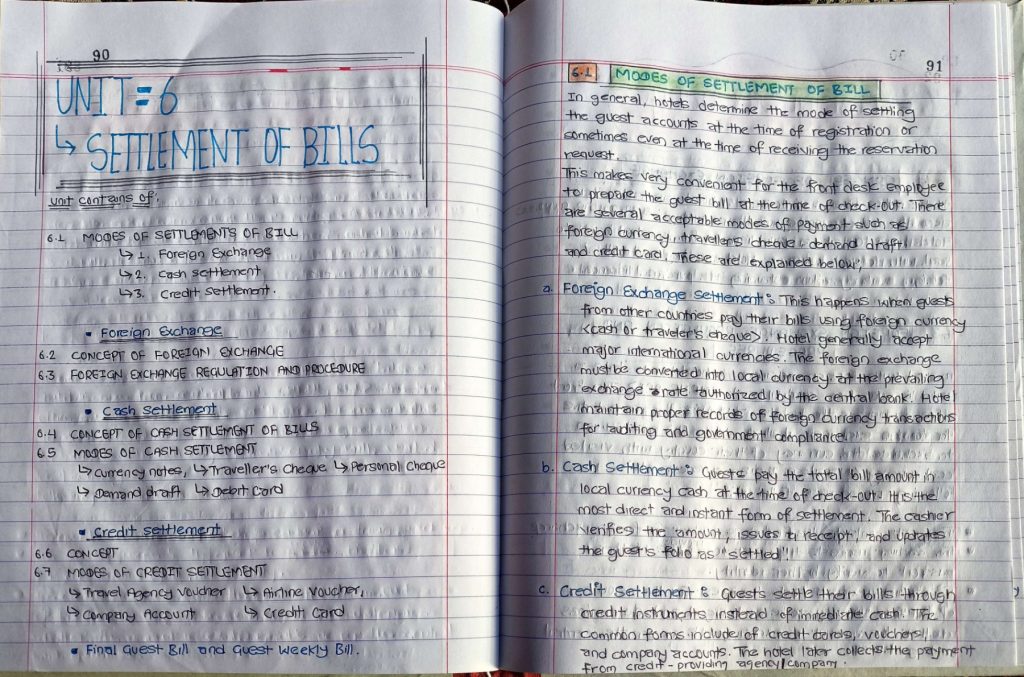 90
UNIT = 6
↳ SETTLEMENT OF BILLS
Unit contains of:
6.1 MODES OF SETTLEMENTS OF BILL
↳ 1. Foreign Exchange
↳ 2. Cash settlement
↳ 3. Credit settlement.
• Foreign Exchange
6.2 CONCEPT OF FOREIGN EXCHANGE
6.3 FOREIGN EXCHANGE REGULATION AND PROCEDURE
• Cash settlement
6.4 CONCEPT OF CASH SETTLEMENT OF BILLS
6.5 MODES OF CASH SETTLEMENT
↳ Currency notes, ↳ Traveller's cheque ↳ Personal Cheque
↳ Demand draft ↳ Debit Card
• Credit settlement
6.6 CONCEPT
6.7 MODES OF CREDIT SETTLEMENT
↳ Travel Agency Voucher ↳ Airline Voucher,
↳ Company Account ↳ Credit Card
• Final Guest Bill and Guest Weekly Bill.
91
6.1 MODES OF SETTLEMENT OF BILL
In general, hotels determine the mode of settling
the guest accounts at the time of registration or
sometimes even at the time of receiving the reservation
request.
This makes very convenient for the front desk employee
to prepare the guest bill at the time of check-out. There
are several acceptable modes of payment such as
foreign currency, traveller's cheque, demand draft
and credit card. These are explained below;
a. Foreign Exchange settlement: This happens when guests
from other countries pay their bills using foreign currency
<cash or traveler's cheque>. Hotel generally accept
major international currencies. The foreign exchange
must be converted into local currency at the prevailing
exchange rate authorized by the central bank. Hotel
maintain proper records of foreign currency transactions
for auditing and government compliance.
b. Cash Settlement: Guests pay the total bill amount in
local currency cash at the time of check-out. It is the
most direct and instant form of settlement. The cashier
verifies the amount, issues a receipt, and updates
the guest's folio as "settled".
c. Credit Settlement: Guests settle their bills through
credit instruments instead of immediate cash. The
common forms include of credit cards, vouchers,
and company accounts. The hotel later collects the payment
from credit-providing agency/company.